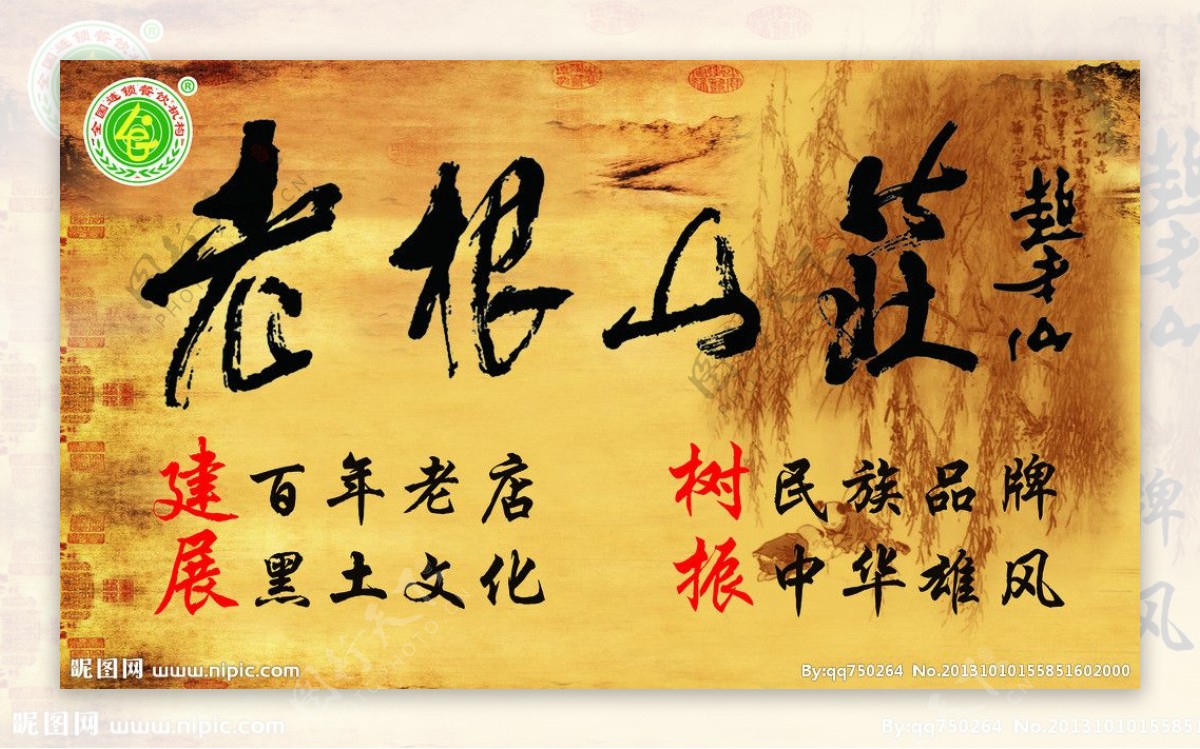 全国连锁餐饮机构
®
老根山莊
赵才仙
建百年老店 树民族品牌
展黑土文化 振中华雄风
昵图网 www.nipic.com
By:qq750264 No.20131010155851602000
昵图网 www.nipic.com
By:qq750264 No.201310101558516